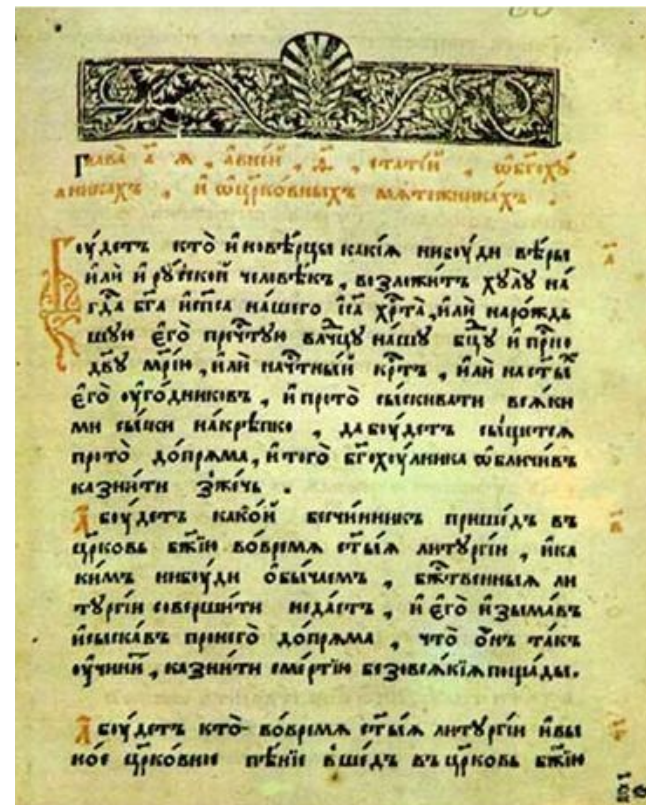 Глава̀ а҃ я , авне́й , д҃ , стате́й , ѡ҆бг҃оху́
лникахъ , и҆ ѡ҆цр҃ко́вныхъ мѧте́жникахъ .
Бꙋ́детъ кто̀ и҆нове́рцы какі́ѧ нибꙋди ве́ры
и҆лѝ и҆ рꙋ́ской человѣ́къ , возложи́тъ хꙋлꙋ̀ на́
гд҇а бг҃а и҆сп҃са на́шего і҆с҃а хр҇та̀ , и҆лѝ наро́ждь
шꙋю є҆го̀ преч҇тꙋю влⷣчцꙋ на́шꙋ бцⷣꙋ и҆ прⷭ҇но
дв҃ꙋ мр҃і́ю , и҆лѝ нач҇тны́й кр҇тъ , и҆лѝ нас҇ты́ⷯ
є҆го̀ ѹ҆го́дниковъ , и҆ прото̀ сы́скивати всѧ́ки
ми сы́ски на́крѣпко , да бꙋ́детъ сы́щетсѧ
прото̀ до́прѧма , и҆ того̀ бг҃охꙋ́лника ѡ҆бличи́въ
казни́ти зже́чь .
А҆ бꙋ́детъ како́й бесчи́нникъ прише́дъ въ
цр҃ковь бж҃ію во́времѧ ст҃ы́ѧ литꙋргі́и , и҆ка
ки́мъ нибꙋди ѻ҆бы́чаемъ , бж҇твенныѧ ли
тꙋргі́и соверши́ти неда́стъ , и҆ є҆го̀ и҆зыма́въ
и҆сыска́въ пронего̀ до́прѧма , что̀ ѻ҆́нъ та́къ
ѹ҆чини́тъ , казни́ти сме́ртїю безовсѧ́кїѧ поща́ды .
А҆ бꙋ́детъ кто̀ во́времѧ ст҃ы́ѧ литꙋргі́и и҆ вы
но́е цр҃ко́вное пѣ́нїе вше́дъ въ цр҃ковь бж҃їю